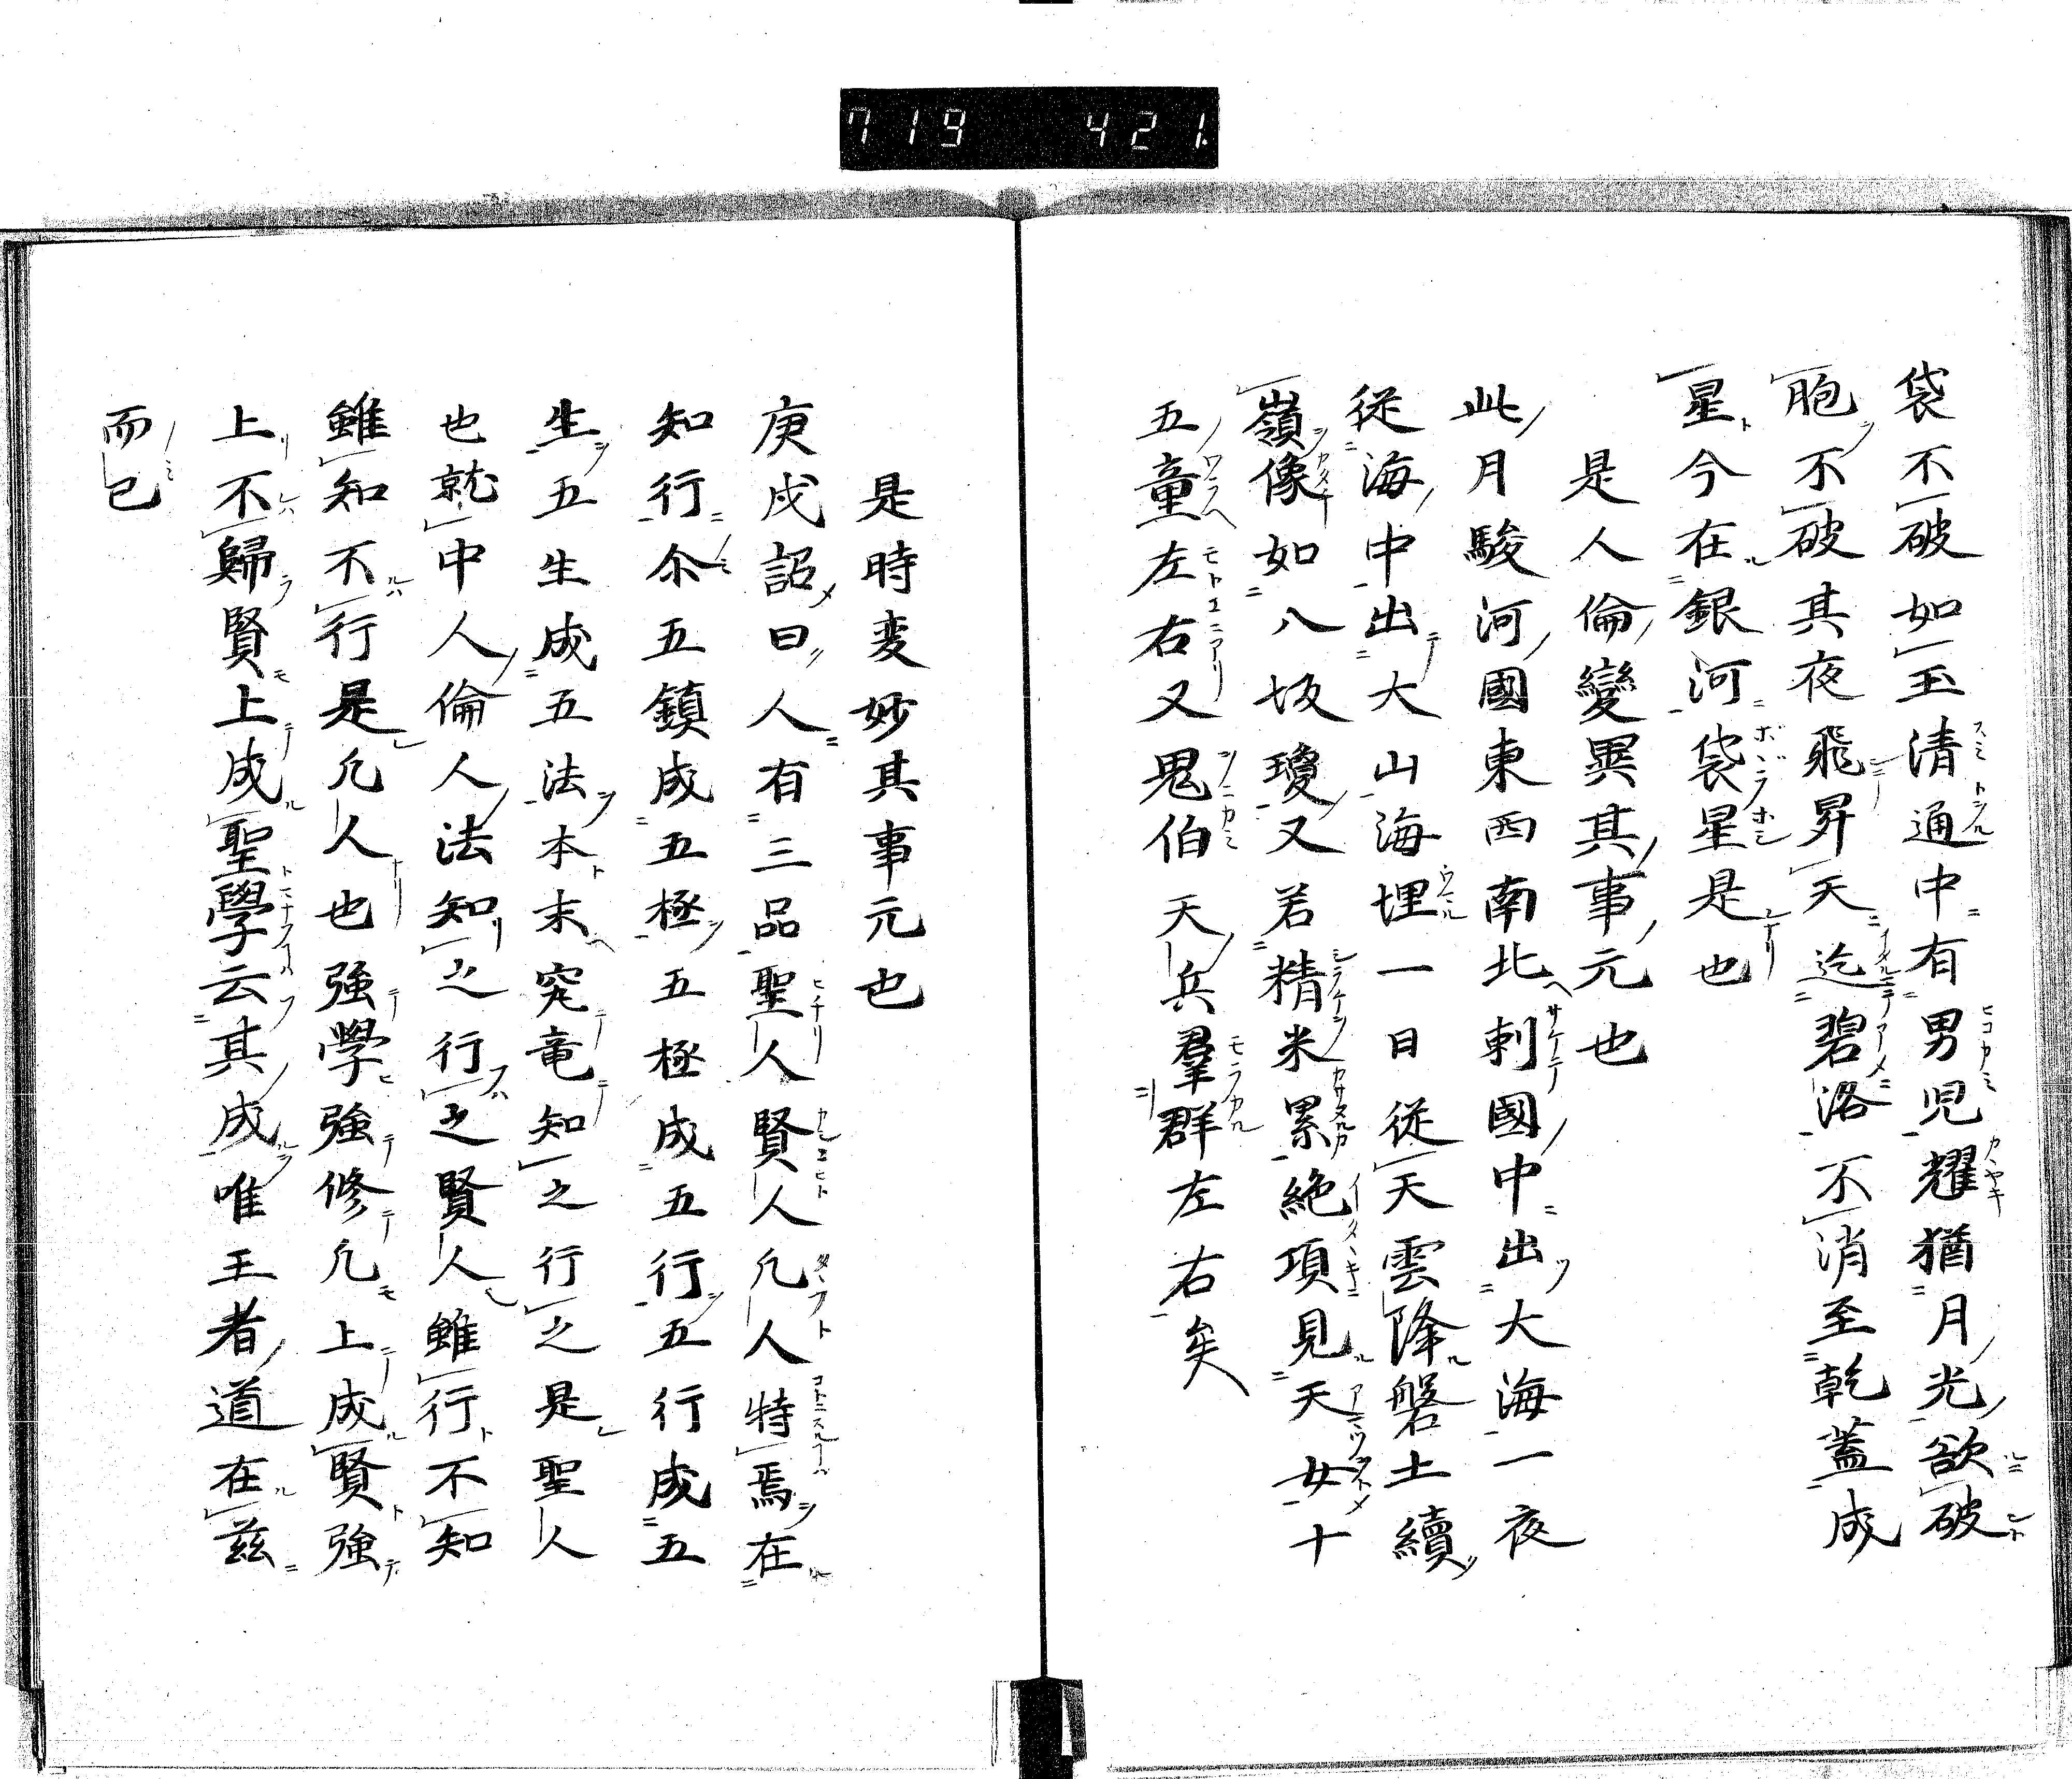 719 421
袋不破如玉清通中有男児耀猶月光欲破
胞不破其夜飛昇天迄碧洛不消至乾蓋成
星今在銀河袋星是也
是人倫變異其事元也
此月駿河國東西南北剌國中出大海一夜
従海中出大山海埋一日従天雲降磐土續
嶺像如八坂瓊又若精米累絶項見天女十
五童左右又鬼伯天兵羣群左右矣
是時変妙其事元也
庚戌詔曰人有三品聖人賢人凢人特焉在
知行尒五鎮成五極五極成五行五行成五
生五生成五法本末究竜知之行之是聖人
也就中人倫人法知之行之賢人雖行不知
雖知不行是凢人也強學強修凢上成賢強
上不歸賢上成聖學云其成唯王者道在茲
而已